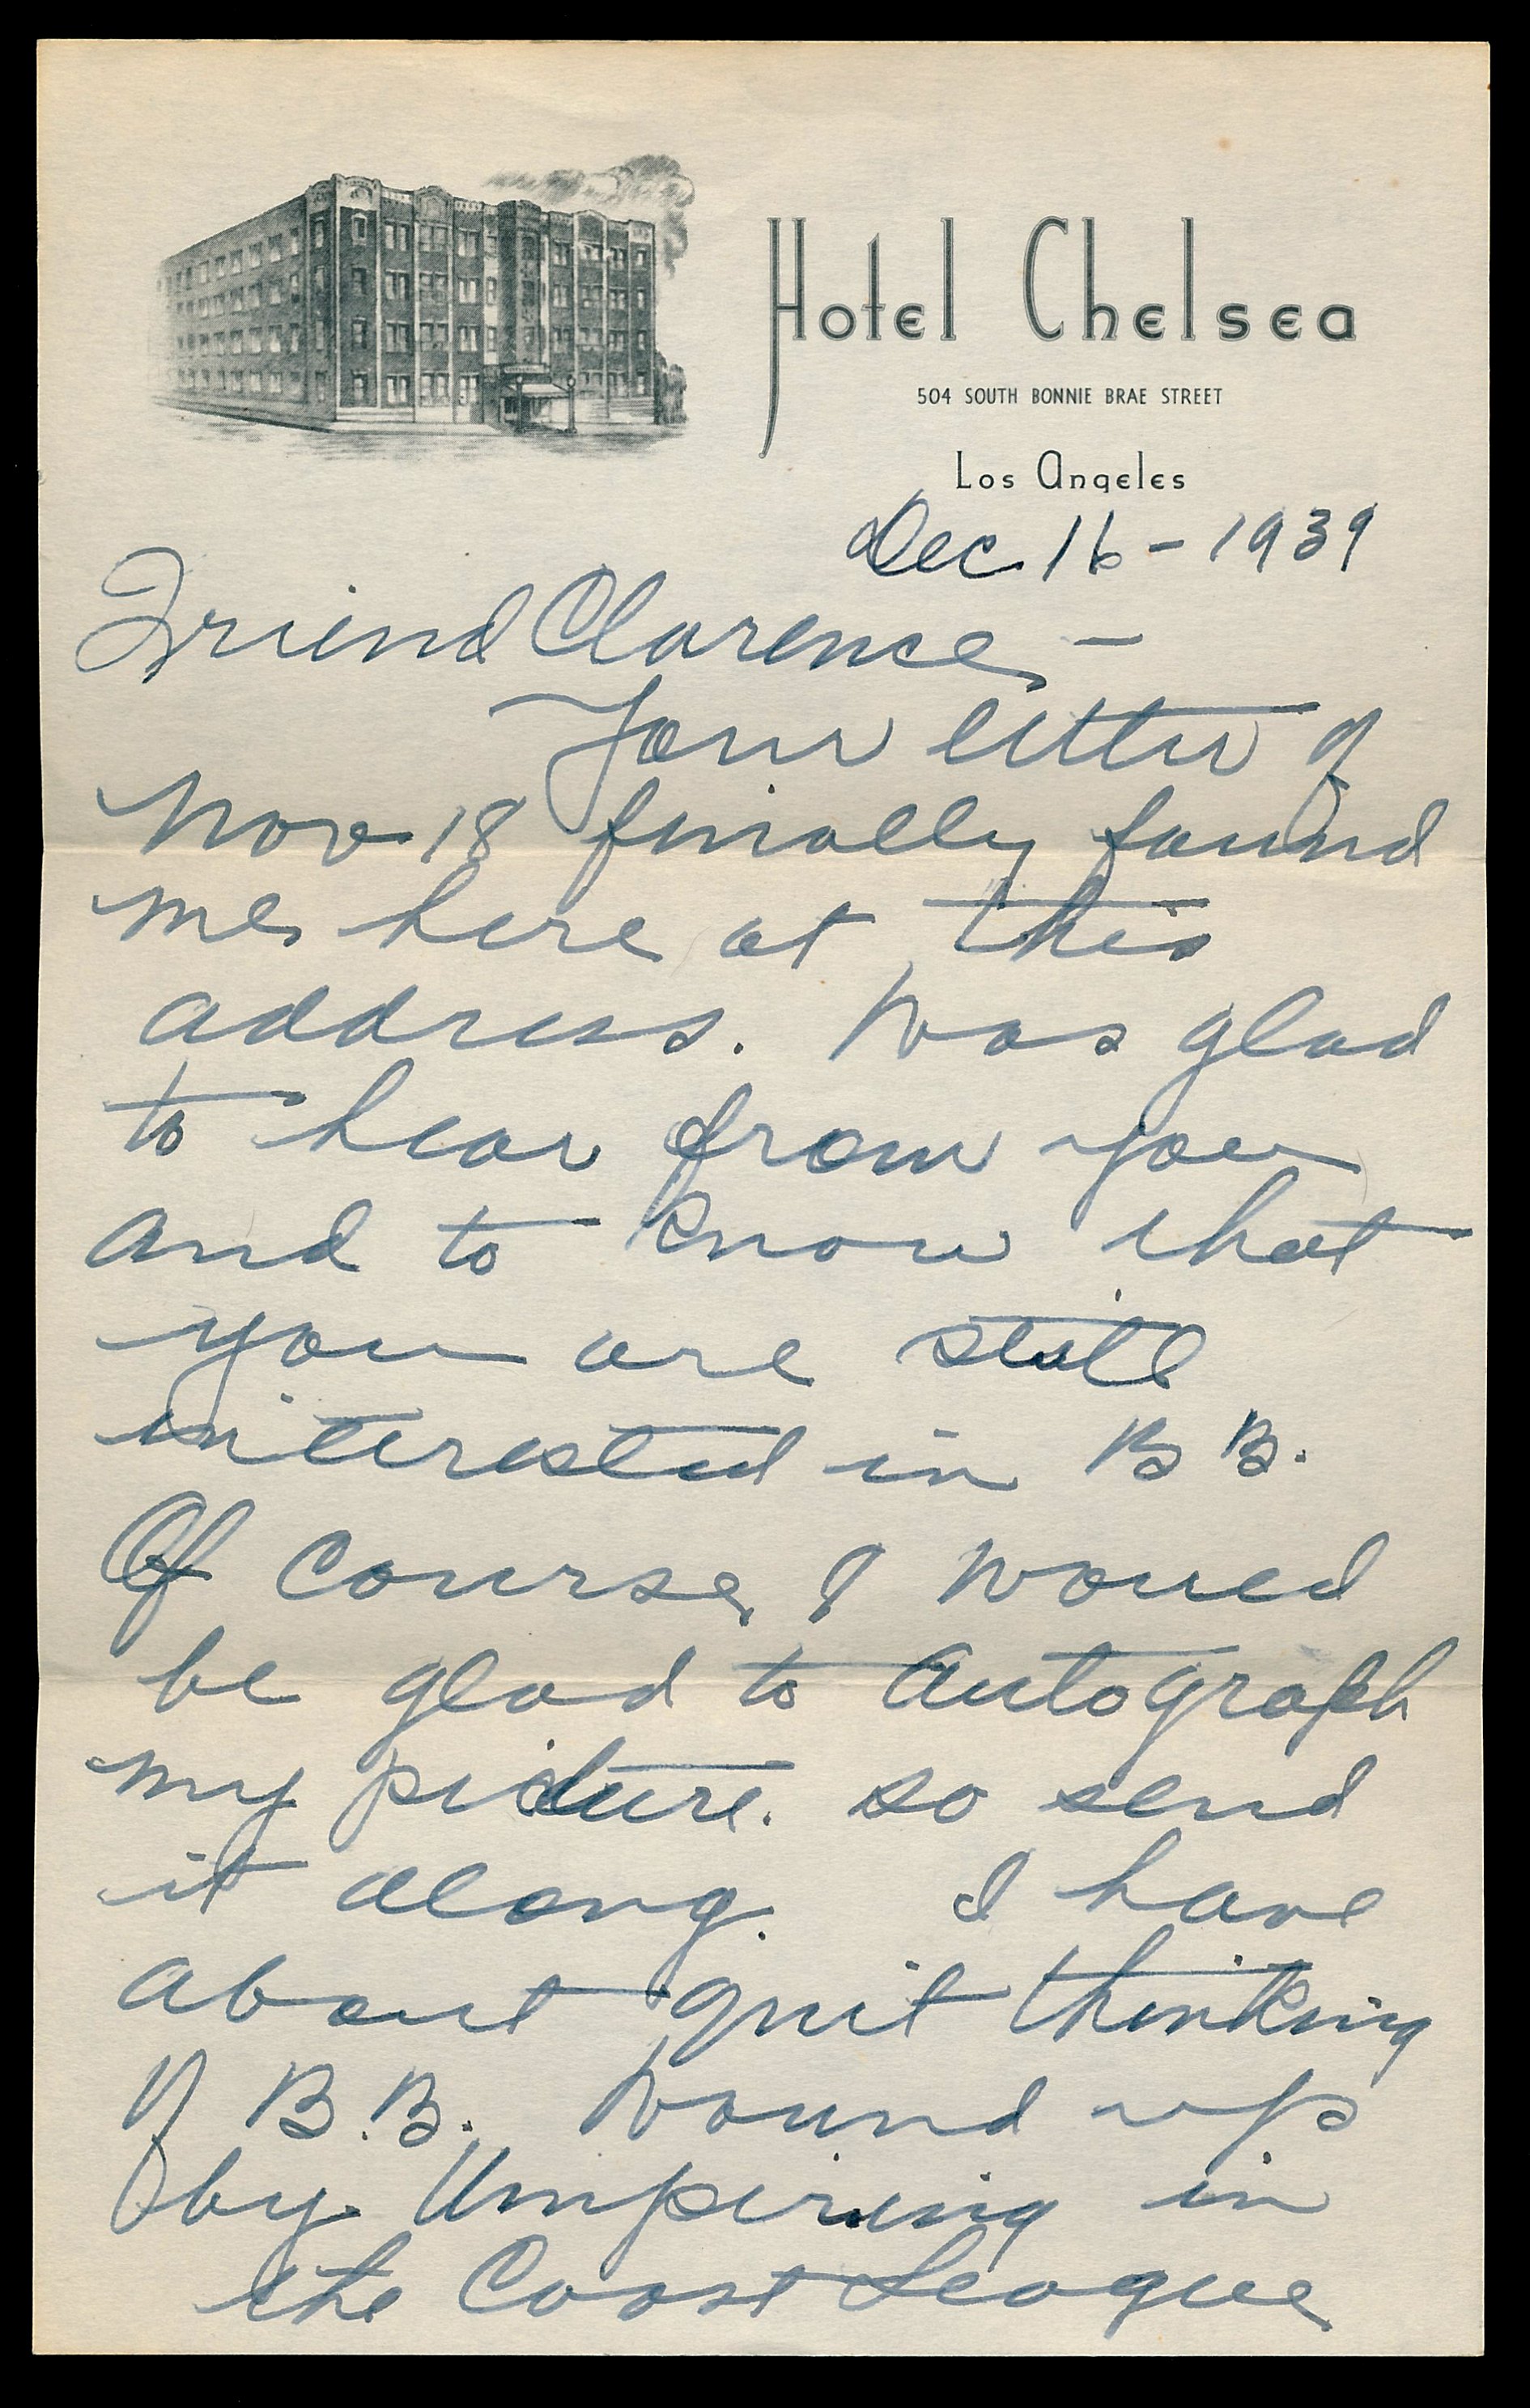 Hotel Chelsea
504 SOUTH BONNIE BRAE STREET
Los Angeles
Dec. 16 - 1939
Friend Clarence, -
Your letter of
Nov. 18 finally found
me here at this
address. Was glad
to hear from you
and to know that
you are still
interested in B B.
Of course, I would
be glad to autograph
my picture. so send
it along. I have
about quit thinking
of B.B. Wound up
by Umpiring in
the Coast League